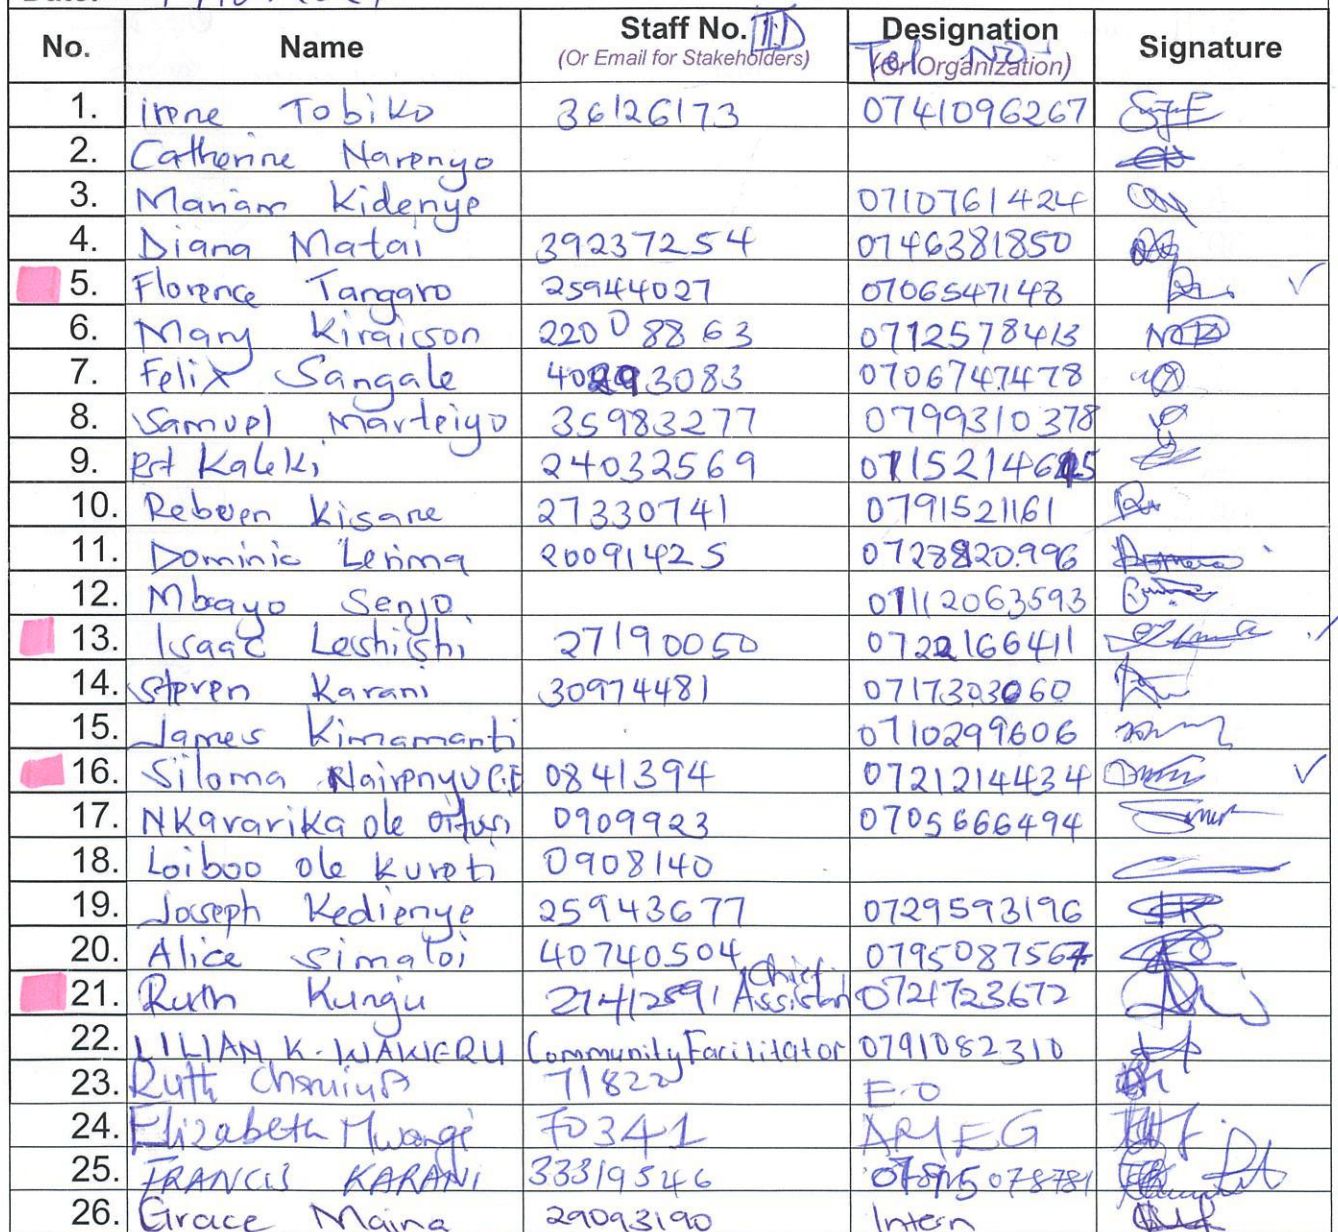 No. Name Staff No. ID Designation Tel No. Signature
(Or Email for Stakeholders) (Or Organization)
1. Irene Tobiko 36126173 0741096267
2. Catherine Narenyo
3. Mariam Kidenye 0710761424
4. Diana Matai 39237254 0746381850
5. Florence Tangaro 25944027 0706547148 ✓
6. Mary Kiraicson 22008863 0712578413
7. Felix Sangale 40293083 0706747478
8. Samuel Marteiyo 35983277 0799310378
9. Pst Kaleki 24032569
10. Reboen Kisare 27330741 0791521161
11. Dominic Lerima 20091425 0728820996
12. Mbayo Senjo 01112063593
13. Isaac Leshishi 27190050 0722166411
14. Steven Karani 30974481 0717303060
15. James Kimamanti 0710299606
16. Siloma Nairenyu C.E 0841394 0721214434 ✓
17. Nkavarika ole 0909923 0705666494
18. Loiboo ole Kureti 0908140
19. Joseph Kedienye 25943677 0729593196
20. Alice Simaloi 40740504 0795087567
21. Ruth Kungu 27412591 Chief Assistant 0721723672
22. LILIAN K. WAWERU Community Facilitator 0791082310
23. Ruth 71822 E.O
24. Elizabeth Mwangi 70341 AMEG
25. FRANCIS KARANI 33319546
26. Grace Maina 29093190 Intern